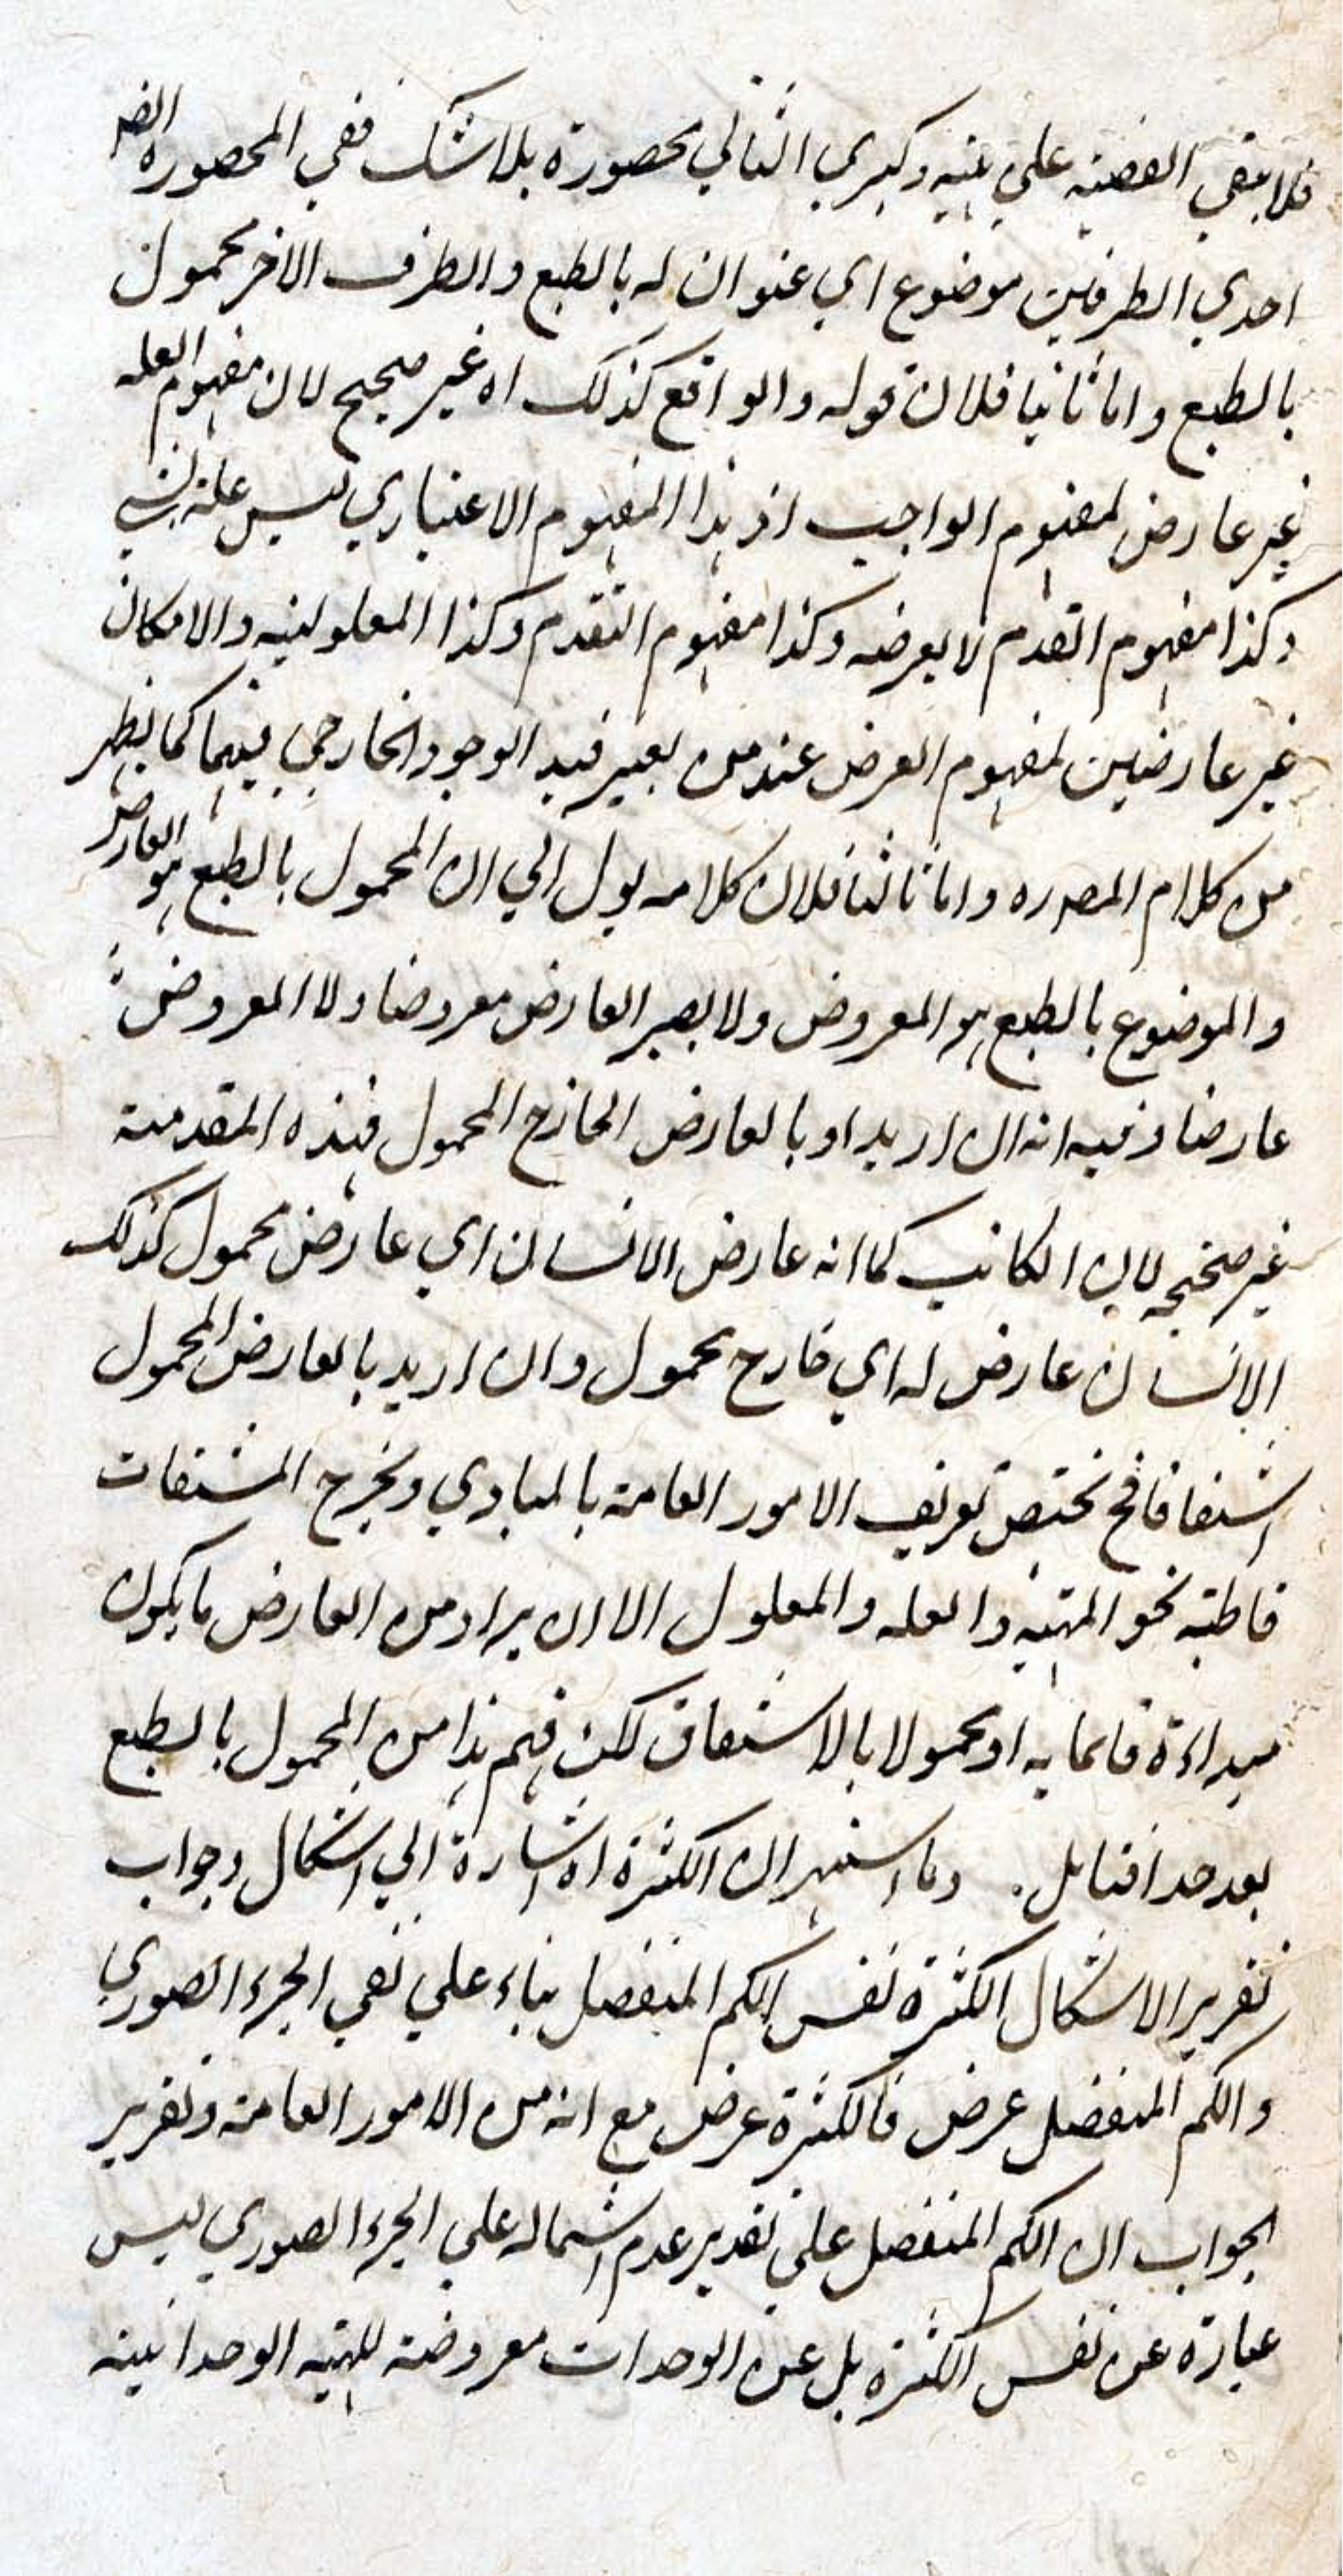 فلا يبقي القضيه علي بينه وكبري الثاني محصورة بلا شك ففي المحصوره
احدي الطرفين موضوع اي عنوان له بالطبع والطرف الاخر محمول
بالطبع واما ثانيا فلان قوله والواقع كذلك اه غير صحيح لان مفهوم العله
غير عارض لمفهوم الواجب اذ هذا المفهوم الاعتباري ليس علة لشي
وكذا مفهوم القدم لا يعرضه وكذا مفهوم التقدم وكذا المعلوليه والامكان
غير عارضين لمفهوم العرض عند من يعتبر قيد الوجود الخارجي فيهما كما يظهر
من كلام المصدره واما ثالثا فلان كلامه يول الي ان المحمول بالطبع هو العارض
والموضوع بالطبع هو المعروض ولا يصير العارض معروضا ولا المعروض
عارضا وفيه انه ان اريد اه بالعارض الخارج المحمول فهذه المقدمة
غير صحيحه لان الكاتب كما انه عارض الانسان اي عارض محمول كذلك
الانسان عارض له اي خارج محمول وان اريد بالعارض المحمول
اشتقاقا فح يختص تعريف الامور العامة بالمبادي ويخرج المشتقات
قاطبة نحو المهيه والعله والمعلول الا ان يراد من العارض ما يكون
مبداءة قائما به او محمولا بالاشتقاق لكن فهم هذا من المحمول بالطبع
بعيد جدا فتامل. وما اشتهر ان الكثرة اه اشارة الي اشكال وجواب
تقرير الاشكال الكثرة نفس الكم المنفصل بناء علي نفي الجزء الصوري
والكم المنفصل عرض فالكثرة عرض مع انه من الامور العامة وتقرير
الجواب ان الكم المنفصل علي تقدير عدم اشتماله علي الجزء الصوري ليس
عبارة عن نفس الكثرة بل عن الوحدات معروضة للهيئه الوحدانية